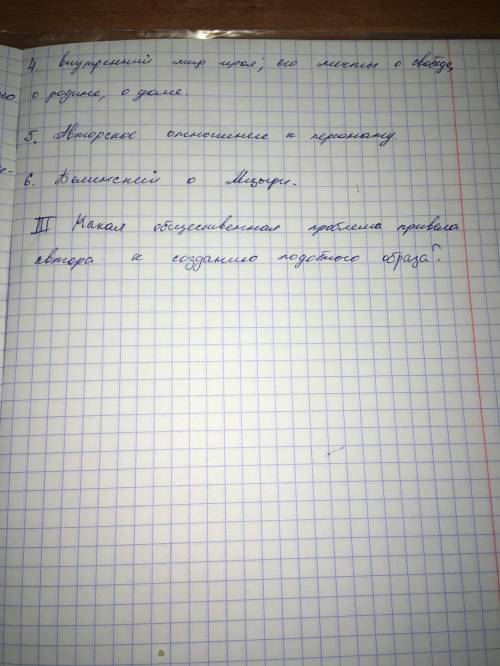 4. Внутренний мир героя; его мечты о свободе,
о родине, о доме.
5. Авторское отношение к персонажу.
6. Белинский о Мцыри.
III Какая общественная проблема привела
автора к созданию подобного образа?